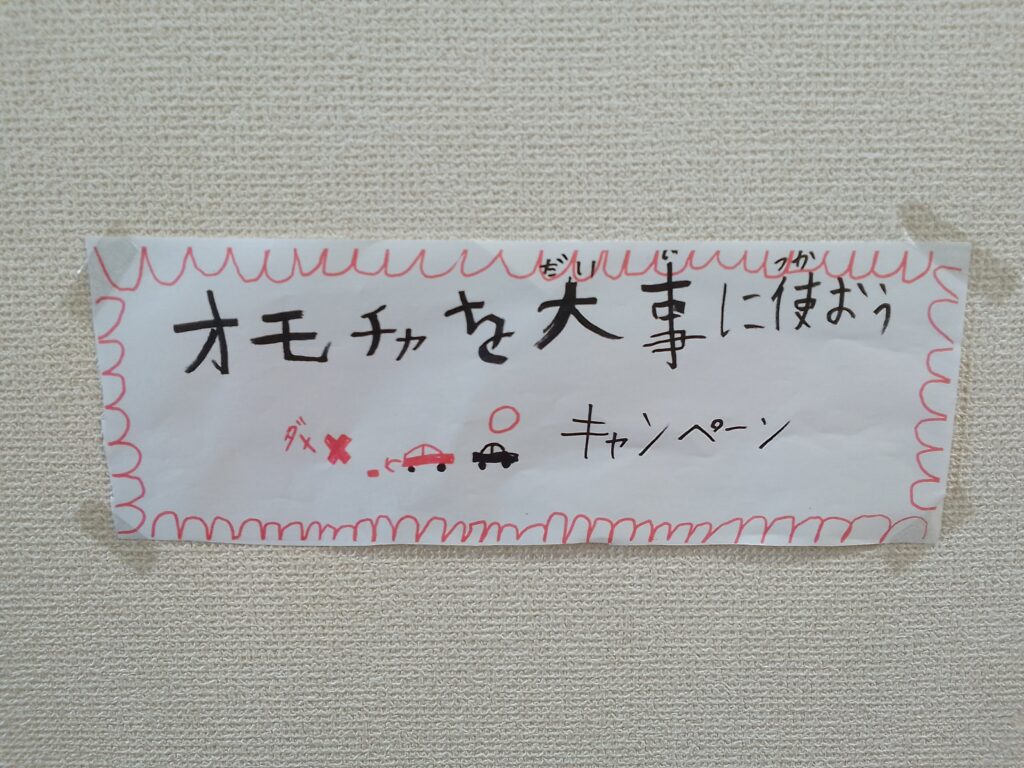 だい じ つか
オモチャを大事に使おう
ダメ ✖ ○ キャンペーン